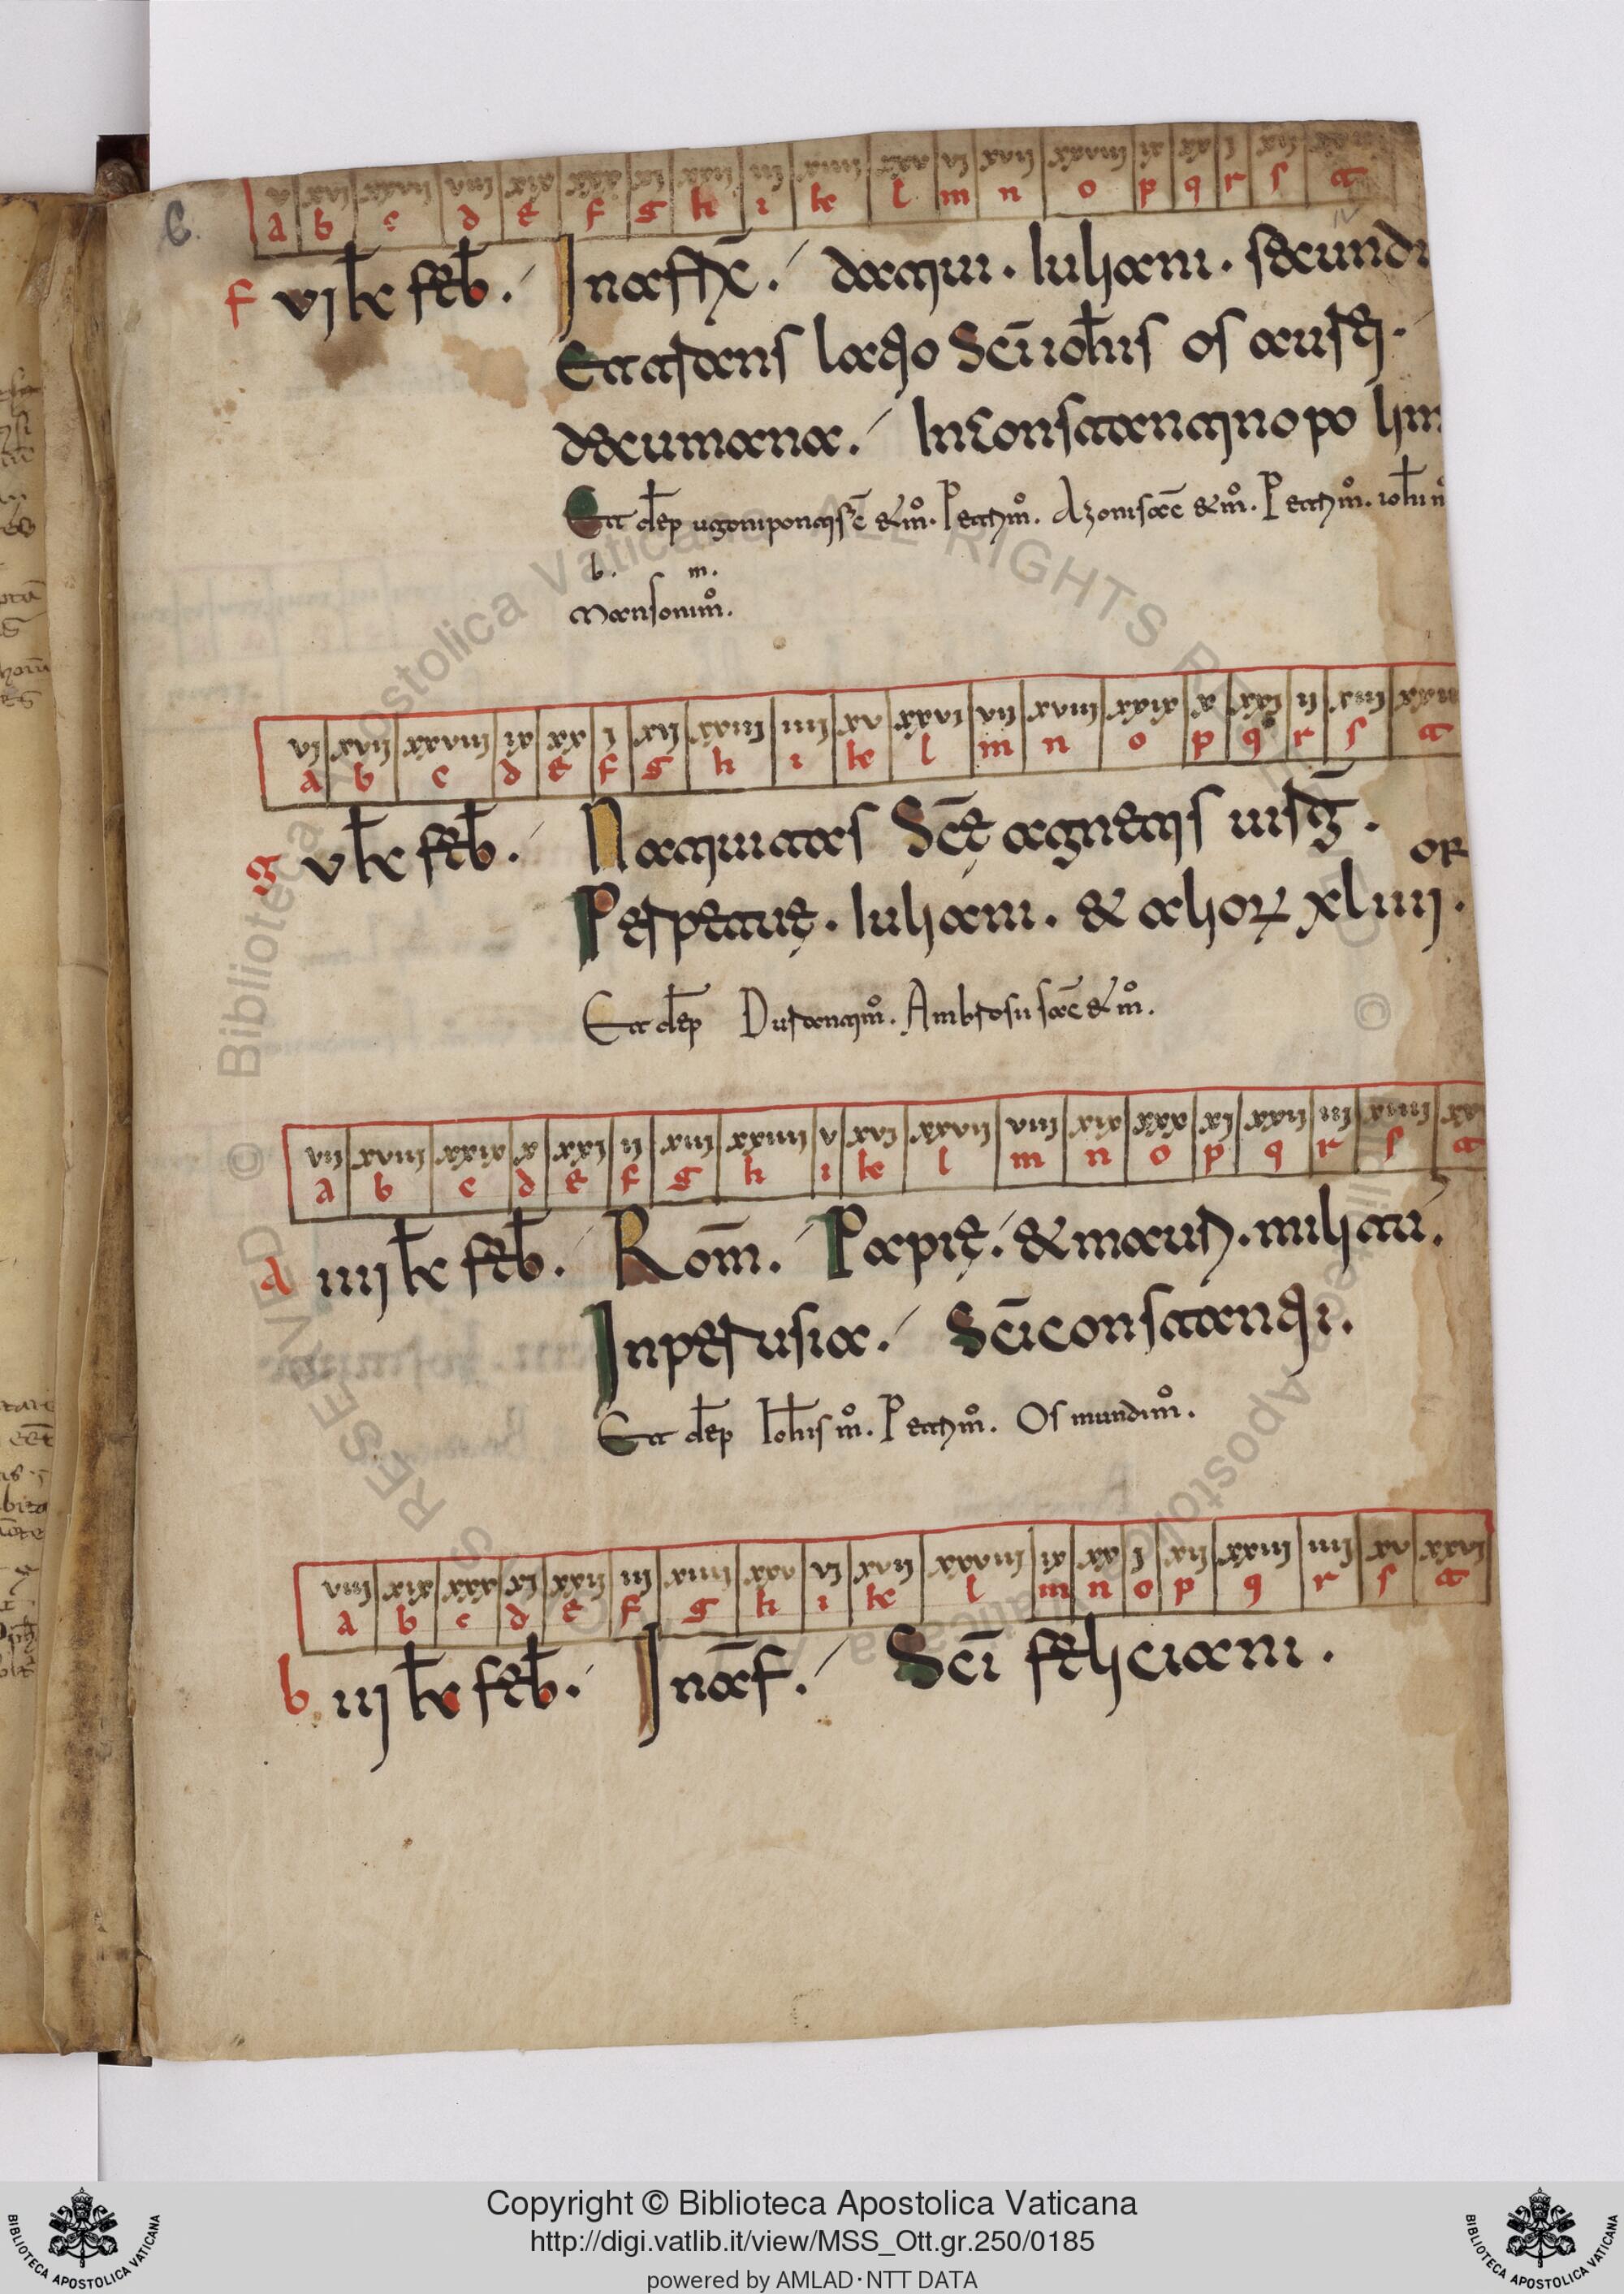 a b c d e f g h i k l m n o p q r s t
f vi kł feb̄. In affr̄c. datiui. Iuliani. secundi
Et translatio sc̄i ioħnis os aurei.
decumana. In Constantinopoli
Et dep̄ ugoni pontis sac̄ & m̊. Petri m̊. Azoni sac̄ & m̊. Petri m̊. ioħnn
b. m.
mansoni m̊.
vi xvii xxviii ix xx i xii xxiii iiii xv xxvi vii xviii xxix x xxi ii xiii xxiiii
a b c d e f g h i k l m n o p q r s t
g v kł feb̄. Natiuitas Sc̄ę agnetis uirḡ.
or
Perpetuę. Iuliani. & alioꝝ xliiii.
Et dep̄ Duranti m̊. Ambrosii sac̄ & m̊.
vii xviii xxix x xxi ii xiii xxiiii v xvi xxvii viii xix xxx xi xxii iii xiiii xxv
a b c d e f g h i k l m n o p q r s t
a iiii kł feb̄. Rom̄. Papię. & mauri. militū.
In perusia. Sc̄i constantii.
Et dep̄ Ioħnis m̊. Petri m̊. Osmundi m̊.
viii xix xxx xi xxii iii xiiii xxv vi xvii xxviii ix xx i xii xxiii iiii xv xxvi
a b c d e f g h i k l m n o p q r s t
b iii kł feb̄. In af̄. Sc̄i feliciani.
Copyright © Biblioteca Apostolica Vaticana
http://digi.vatlib.it/view/MSS_Ott.gr.250/0185
powered by AMLAD·NTT DATA
BIBLIOTECA APOSTOLICA VATICANA
BIBLIOTECA APOSTOLICA VATICANA